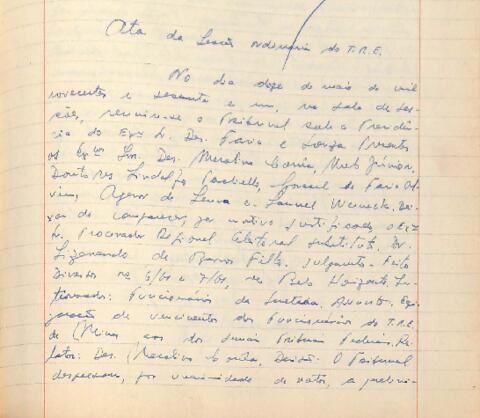 Ata da Sessão ordinária do T.R.E.
No dia doze de maio de mil
novecentos e sessenta e um, na sala de ses-
sões, reuniu-se o Tribunal sob a Presidên-
cia do Exmo Sr. Des. Faria e Souza. Presentes
os Exmos Srs. Des. Merolino Corrêa,
Doutores Lindolfo Gorazil de Faria Al-
vim, Agenor de Senna e Samuel Werneck. Dei-
xou de comparecer, por motivo justificado, o Exmo
Sr. Procurador Regional Eleitoral substituto, Dr.
de Barros Filho. Julgamento. Feito
Diversos nos 6/61 e 7/61, de Belo Horizonte. In-
teressados: Funcionários da Secretaria. Assunto: Equi-
paração de vencimentos dos Funcionários do T.R.E.
de Minas aos dos demais Tribunais Federais. Re-
lator: Des. Merolino Corrêa. Decisão: O Tribunal
desprezou, por unanimidade de votos, a prelimi-